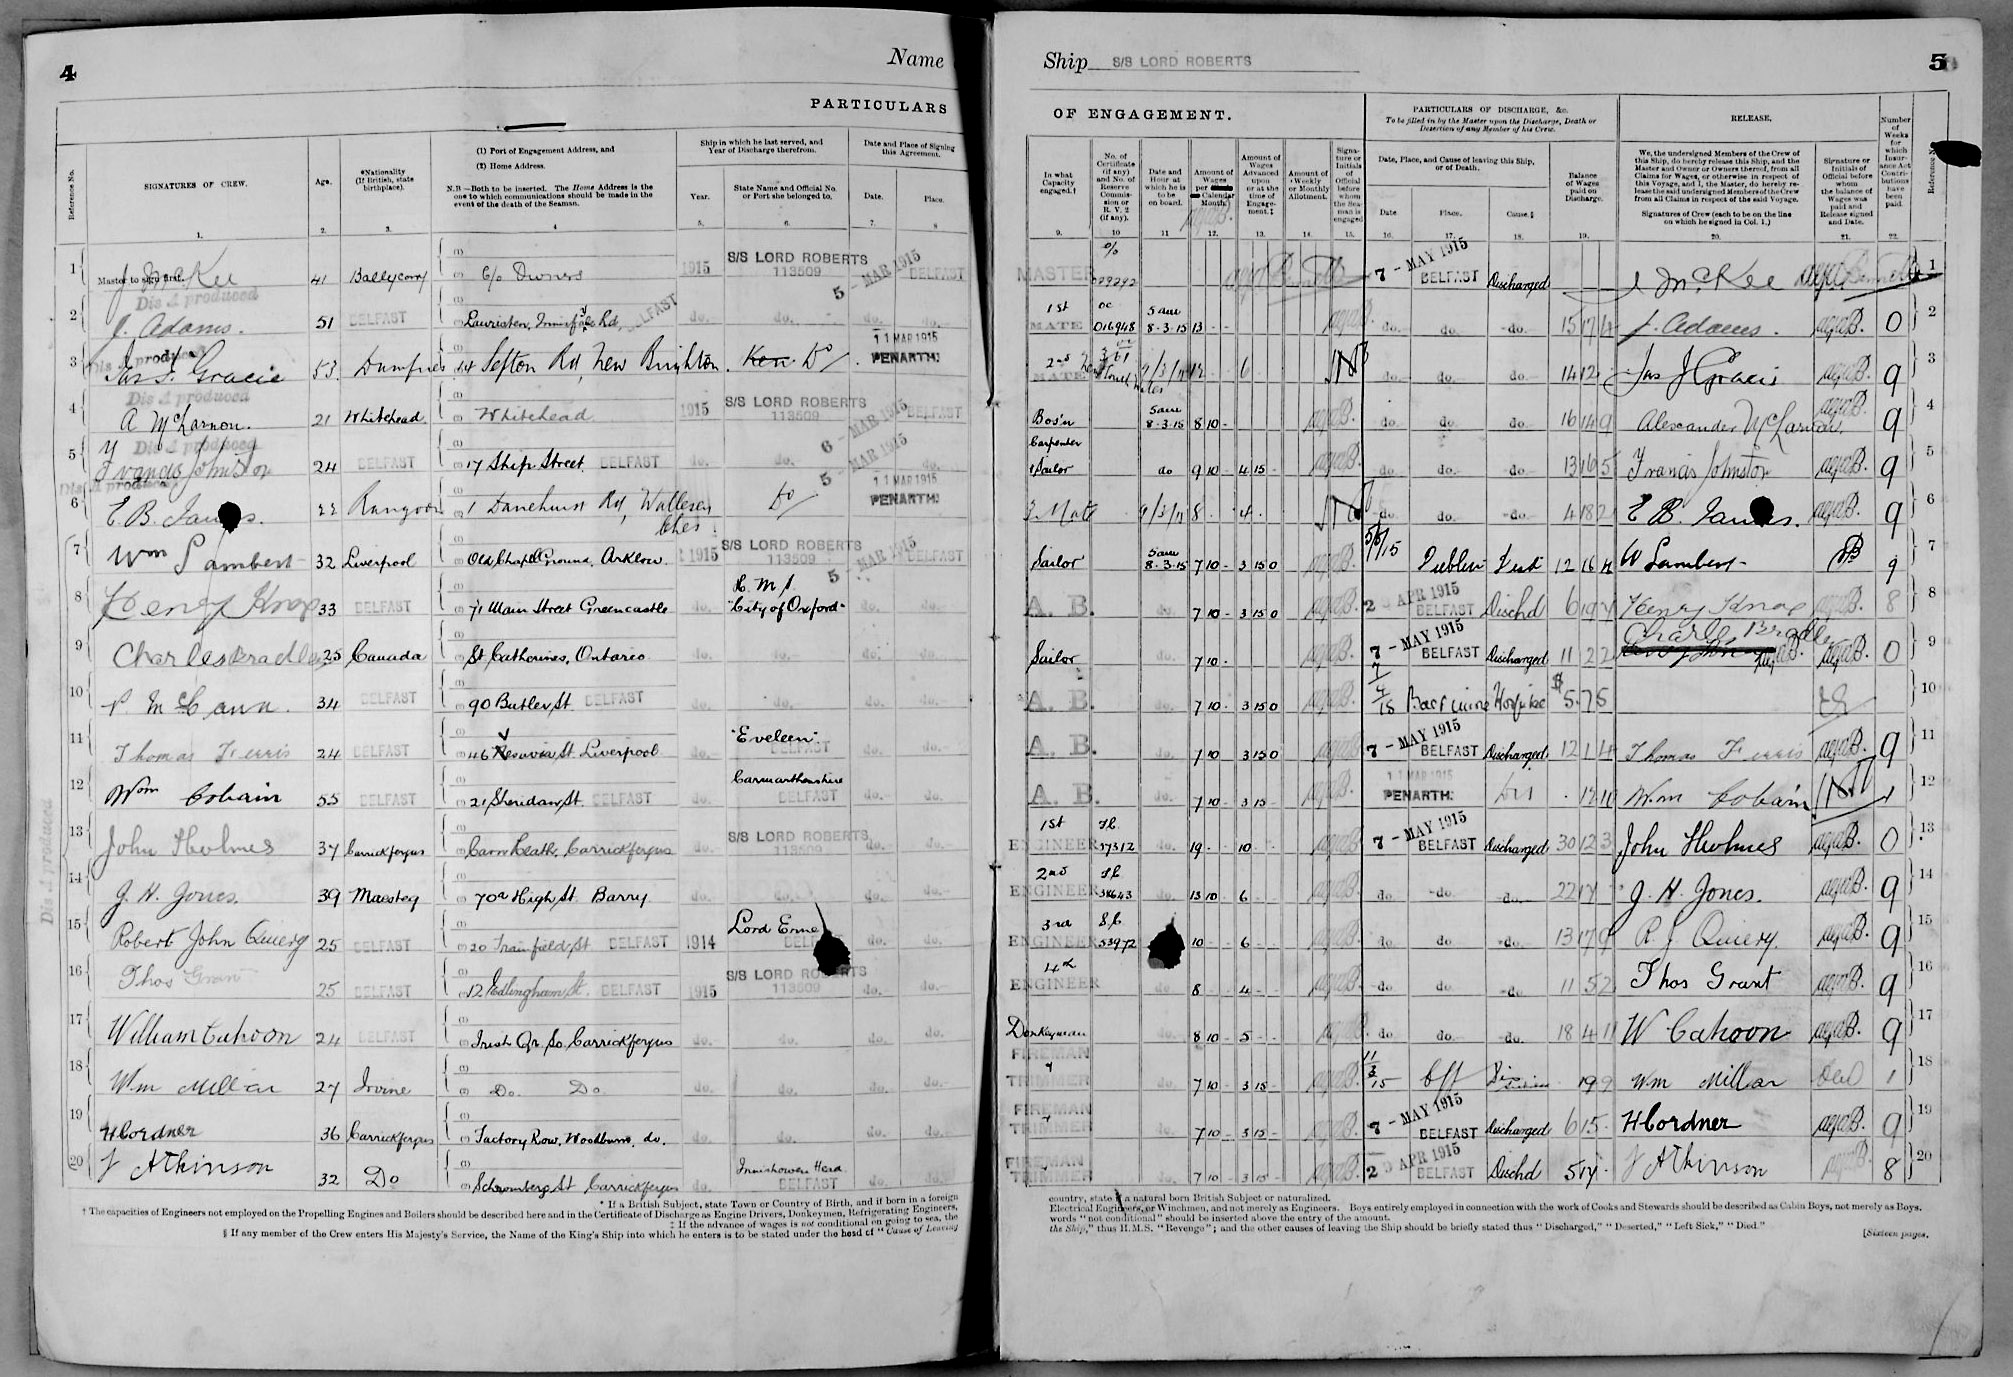 4
Name
PARTICULARS
Reference No.
SIGNATURES OF CREW.
Age.
*Nationality
(If British, state
birthplace).
(1) Port of Engagement Address, and
(2) Home Address.
N.B —Both to be inserted. The Home Address is the
one to which communications should be made in the
event of the death of the Seaman.
Ship in which he last served, and
Year of Discharge therefrom.
Year.
State Name and Official No.
or Port she belonged to.
Date and Place of Signing
this Agreement.
Date.
Place.
1. 2. 3. 4 5. 6. 7. 8
1 Master to sign first. J McKee 41 Ballycarry C/o Owners 1915 S/S LORD ROBERTS 113509 5 - MAR 1915 BELFAST
Dis A produced
2 J. Adams. 51 BELFAST Lauriston, Innisfail Rd, BELFAST do. do. do.
Dis A produced
3 Jas J. Gracie 53. Dumfries 14 Sefton Rd, New Brighton. Do 11 MAR 1915 PENARTH.
Dis A produced
4 A McLarnon. 21 Whitehead Whitehead 1915 S/S LORD ROBERTS 113509 6 - MAR 1915 BELFAST
Dis A produced
5 Francis Johnston 24 BELFAST 17 Ship Street. BELFAST do. do. 5 - MAR 1915 do.
Dis A produced
6 E. B. James. 22 Rangoon 1 Danehurst Rd, Wallasey Ches Do 11 MAR 1915 PENARTH.
7 Wm Lambert 32 Liverpool Old Chapel Ground, Arklow 1915 S/S LORD ROBERTS 113509 5 - MAR 1915 BELFAST
8 Henry Knox 33 BELFAST 71 Main Street Greencastle do. R. M. S. "City of Oxford"
9 Charles Bradley 25 Canada St Catherines, Ontario do. do. do. do.
10 P. McCann. 34 BELFAST 90 Butler St. BELFAST do. do. do. do.
11 Thomas Ferris 24 BELFAST 46 Vesuvia St. Liverpool do. "Eveleen" BELFAST do. do.
12 Wm Cobain 55 BELFAST 21 Sheridan St. BELFAST do. Carmarthenshire BELFAST do. do.
13 John Holmes 37 Carrickfergus Cairn Heath, Carrickfergus S/S LORD ROBERTS 113509 do. do.
14 J. H. Jones. 39 Maesteg 70a High St. Barry do. do. do. do.
15 Robert John Quiery 25 BELFAST 20 Trainfield St. BELFAST 1914 Lord Erne do. do.
16 Thos Grant 25 BELFAST 12 Edlingham St. BELFAST 1915 S/S LORD ROBERTS 113509 do. do.
17 William Cahoon 24 BELFAST Irish Qr So. Carrickfergus do. do. do. do.
18 Wm Millar 27 Irvine Do. Do do. do. do. do.
19 H Cordner 36 Carrickfergus Factory Row, Woodburn, do. do. do. do. do.
20 J Atkinson 32 Do Schomberg St Carrickfergus do. Innishowen Head BELFAST do. do.
Dis A produced
* If a British Subject, state Town or Country of Birth, and if born in a foreign
† The capacities of Engineers not employed on the Propelling Engines and Boilers should be described here and in the Certificate of Discharge as Engine Drivers, Donkeymen, Refrigerating Engineers,
‡ If the advance of wages is not conditional on going to sea, the
§ If any member of the Crew enters His Majesty's Service, the Name of the King's Ship into which he enters is to be stated under the head of "Cause of Leaving
Ship S/S LORD ROBERTS
5
OF ENGAGEMENT.
PARTICULARS OF DISCHARGE, &c.
To be filled in by the Master upon the Discharge, Death or
Desertion of any Member of his Crew.
RELEASE.
In what
Capacity
engaged.†
No. of
Certificate
(if any)
and No. of
Reserve
Commis-
sion or
R. V. 2
(if any).
Date and
Hour at
which he is
to be
on board.
Amount of
Wages
per
Calendar
Month.
Amount of
Wages
Advanced
upon
or at the
time of
Engage-
ment.‡
Amount of
Weekly
or Monthly
Allotment.
Signa-
ture or
Initials
of
Official
before
whom
the Sea-
man is
engaged
Date, Place, and Cause of leaving this Ship,
or of Death.
Date
Place.
Cause.§
Balance
of Wages
paid on
Discharge.
We, the undersigned Members of the Crew of
this Ship, do hereby release this Ship, and the
Master and Owner or Owners thereof, from all
Claims for Wages, or otherwise in respect of
this Voyage, and I, the Master, do hereby re-
lease the said undersigned Members of the Crew
from all Claims in respect of the said Voyage.
Signatures of Crew (each to be on the line
on which he signed in Col. 1.)
Signature or
Initials of
Official before
whom
the balance of
Wages was
paid and
Release signed
and Date.
Number
of
Weeks
for
which
Insur-
ance Act
Contri-
butions
have
been
paid.
Reference No.
9. 10 11 12. 13. 14. 15. 16. 17. 18. 19. 20. 21. 22.
MASTER 7 - MAY 1915 BELFAST Discharged J McKee 1
1st MATE 016948 5 am 8-3-15 13 do. do. do. 15 17 4 J. Adams. 0 2
2nd MATE 9/3/15 12 6 do. do. do. 14 12 Jas J Gracie 9 3
Bos'n 5 am 8-3-15 8 10 do. do. do. 16 14 9 Alexander McLarnon. 9 4
Carpenter & Sailor do 9 10 4 15 do. do. do. 13 16 5 Francis Johnston 9 5
3 Mate 9/3/15 8 4 do. do. do. 4 18 2 E B. James. 9 6
Sailor 5 am 8-3-15 7 10 3 15 0 5/5/15 Dublin 12 16 W Lambert 9 7
A. B. do. 7 10 3 15 0 APR 1915 BELFAST Dischd 6 19 Henry Knox 8 8
Sailor do. 7 10 7 - MAY 1915 BELFAST Discharged 11 2 2 Charles Bradley 0 9
A. B. do. 7 10 3 15 0 Hospital $ 575 10
A. B. do. 7 10 3 15 0 7 - MAY 1915 BELFAST Discharged 12 1 4 Thomas Ferris 9 11
A. B. do. 7 10 3 15 11 MAR 1915 PENARTH. Wm Cobain 1 12
1st ENGINEER 37312 do. 19 10 7 - MAY 1915 BELFAST Discharged 30 12 3 John Holmes 0 13
2nd ENGINEER 38643 do. 13 10 6 do do. do. 22 17 J. H. Jones. 9 14
3rd ENGINEER 53972 10 6 do. do do. 13 17 9 R. J Quiery 9 15
4th ENGINEER do. 8 4 do. do. do. 11 5 2 Thos Grant 9 16
Donkeyman do. 8 10 5 do. do. do. 18 4 11 W Cahoon 9 17
FIREMAN & TRIMMER do. 7 10 3 15 11/3/15 19 9 Wm Millar 1 18
FIREMAN & TRIMMER do. 7 10 3 15 7 - MAY 1915 BELFAST Discharged 6 15 H Cordner 9 19
FIREMAN & TRIMMER do. 7 10 3 15 APR 1915 BELFAST Dischd 5 17 J Atkinson 8 20
country, state if a natural born British Subject or naturalized.
Electrical Engineers, or Winchmen, and not merely as Engineers. Boys entirely employed in connection with the work of Cooks and Stewards should be described as Cabin Boys, not merely as Boys.
words "not conditional" should be inserted above the entry of the amount.
the Ship," thus H.M.S. "Revenge"; and the other causes of leaving the Ship should be briefly stated thus "Discharged," "Deserted," "Left Sick," "Died."
[Sixteen pages.